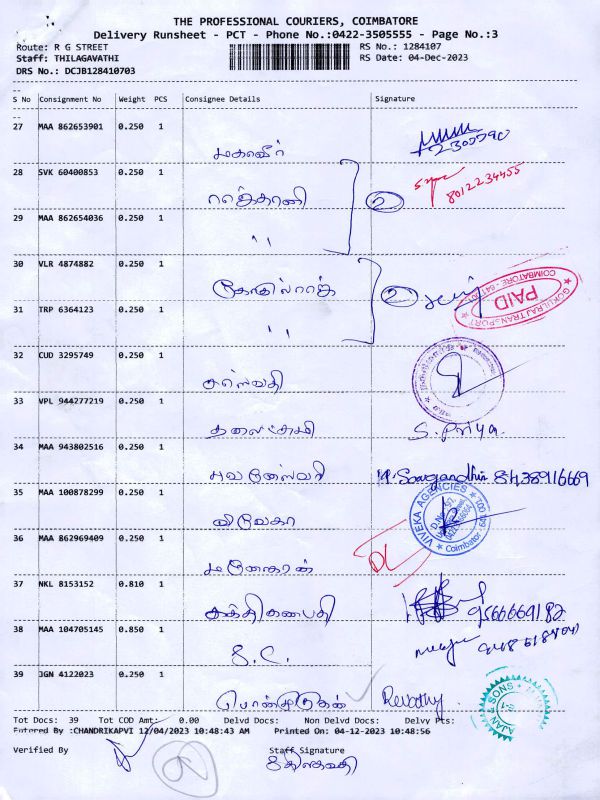 THE PROFESSIONAL COURIERS, COIMBATORE
Delivery Runsheet - PCT - Phone No.:0422-3505555 - Page No.:3
Route: R G STREET RS No.: 1284107
Staff: THILAGAVATHI RS Date: 04-Dec-2023
DRS No.: DCJB128410703
S No Consignment No Weight PCS Consignee Details Signature
27 MAA 862653901 0.250 1
மகாவீர்
28 SVK 60400853 0.250 1
2 8012234455
29 MAA 862654036 0.250 1
"
30 VLR 4874882 0.250 1
கோகுல்ராஜ் 2
GOKULRAJ TRANSPORT PAID COIMBATORE
31 TRP 6364123 0.250 1
"
32 CUD 3295749 0.250 1
சரஸ்வதி
33 VPL 944277219 0.250 1
S. Priya.
34 MAA 943802516 0.250 1
புவனேஸ்வரி 8438916669
35 MAA 100878299 0.250 1
விவேகா VIVEKA AGENCIES Coimbatore
36 MAA 862969409 0.250 1
மனோகரன்
37 NKL 8153152 0.810 1
சக்தி கணபதி 9566669182
38 MAA 104705145 0.850 1
S.C.
39 JGN 4122023 0.250 1
பொன்முருகன் Revathy
AJAN & SONS
Tot Docs: 39 Tot COD Amt: 0.00 Delvd Docs: Non Delvd Docs: Delvy Pts:
Entered By :CHANDRIKAPVI 12/04/2023 10:48:43 AM Printed On: 04-12-2023 10:48:56
Verified By Staff Signature